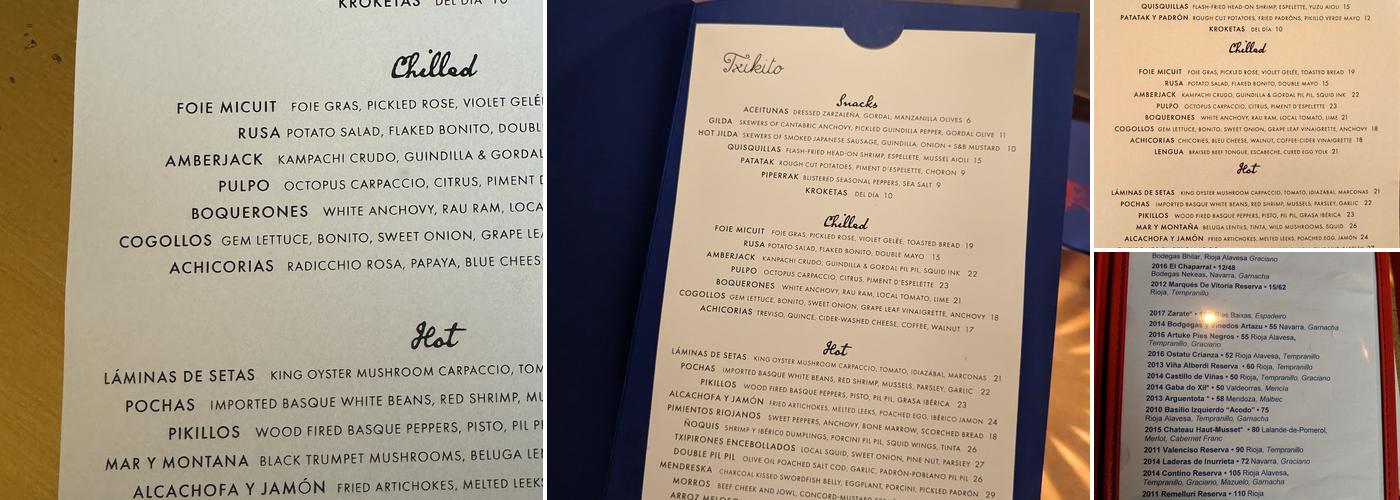 KROKETAS DEL DÍA 10
Chilled
FOIE MICUIT FOIE GRAS, PICKLED ROSE, VIOLET GELÉE
RUSA POTATO SALAD, FLAKED BONITO, DOUBL
AMBERJACK KAMPACHI CRUDO, GUINDILLA & GORDAL
PULPO OCTOPUS CARPACCIO, CITRUS, PIMENT D
BOQUERONES WHITE ANCHOVY, RAU RAM, LOCA
COGOLLOS GEM LETTUCE, BONITO, SWEET ONION, GRAPE LEA
ACHICORIAS RADICCHIO ROSA, PAPAYA, BLUE CHEES
Hot
LÁMINAS DE SETAS KING OYSTER MUSHROOM CARPACCIO, TOM
POCHAS IMPORTED BASQUE WHITE BEANS, RED SHRIMP, MU
PIKILLOS WOOD FIRED BASQUE PEPPERS, PISTO, PIL PI
MAR Y MONTANA BLACK TRUMPET MUSHROOMS, BELUGA LEN
ALCACHOFA Y JAMÓN FRIED ARTICHOKES, MELTED LEEKS
Txikito
Snacks
ACEITUNAS DRESSED ZARZALEÑA, GORDAL, MANZANILLA OLIVES 6
GILDA SKEWERS OF CANTABRIC ANCHOVY, PICKLED GUINDILLA PEPPER, GORDAL OLIVE 11
HOT JILDA SKEWERS OF SMOKED JAPANESE SAUSAGE, GUINDILLA, ONION + S&B MUSTARD 10
QUISQUILLAS FLASH-FRIED HEAD-ON SHRIMP, ESPELLETE, MUSSEL AIOLI 15
PATATAK ROUGH CUT POTATOES, PIMENT D'ESPELETTE, CHORON 9
PIPERRAK BLISTERED SEASONAL PEPPERS, SEA SALT 9
KROKETAS DEL DÍA 10
Chilled
FOIE MICUIT FOIE GRAS, PICKLED ROSE, VIOLET GELÉE, TOASTED BREAD 19
RUSA POTATO SALAD, FLAKED BONITO, DOUBLE MAYO 15
AMBERJACK KANPACHI CRUDO, GUINDILLA & GORDAL PIL PIL, SQUID INK 22
PULPO OCTOPUS CARPACCIO, CITRUS, PIMENT D'ESPELETTE 23
BOQUERONES WHITE ANCHOVY, RAU RAM, LOCAL TOMATO, LIME 21
COGOLLOS GEM LETTUCE, BONITO, SWEET ONION, GRAPE LEAF VINAIGRETTE, ANCHOVY 18
ACHICORIAS TREVISO, QUINCE, CIDER-WASHED CHEESE, COFFEE, WALNUT 17
Hot
LÁMINAS DE SETAS KING OYSTER MUSHROOM CARPACCIO, TOMATO, IDIAZABAL, MARCONAS 21
POCHAS IMPORTED BASQUE WHITE BEANS, RED SHRIMP, MUSSELS, PARSLEY, GARLIC 22
PIKILLOS WOOD FIRED BASQUE PEPPERS, PISTO, PIL PIL, GRASA IBÉRICA 23
ALCACHOFA Y JAMÓN FRIED ARTICHOKES, MELTED LEEKS, POACHED EGG, IBÉRICO JAMON 24
PIMIENTOS RIOJANOS SWEET PEPPERS, ANCHOVY, BONE MARROW, SCORCHED BREAD 18
ÑOQUIS SHRIMP Y IBÉRICO DUMPLINGS, PORCINI PIL PIL, SQUID WINGS, TINTA 26
TXIPIRONES ENCEBOLLADOS LOCAL SQUID, SWEET ONION, PINE NUT, PARSLEY 27
DOUBLE PIL PIL OLIVE OIL POACHED SALT COD, GARLIC, PADRÓN-POBLANO PIL PIL
MENDRESKA CHARCOAL KISSED SWORDFISH BELLY, EGGPLANT, PORCINI, PICKLED PADRÓN 29
MORROS BEEF CHEEK AND JOWL, CONCORD-MUSTARD
ARROZ MELOSO
QUISQUILLAS FLASH-FRIED HEAD-ON SHRIMP, ESPELETTE, YUZU AIOLI 15
PATATAK Y PADRÓN ROUGH CUT POTATOES, FRIED PADRÓNS, PIKILLO VERDE MAYO 12
KROKETAS DEL DÍA 10
Chilled
FOIE MICUIT FOIE GRAS, PICKLED ROSE, VIOLET GELEE, TOASTED BREAD 19
RUSA POTATO SALAD, FLAKED BONITO, DOUBLE MAYO 15
AMBERJACK KAMPACHI CRUDO, GUINDILLA & GORDAL PIL PIL, SQUID INK 22
PULPO OCTOPUS CARPACCIO, CITRUS, PIMENT D'ESPELETTE 23
BOQUERONES WHITE ANCHOVY, RAU RAM, LOCAL TOMATO, LIME 21
COGOLLOS GEM LETTUCE, BONITO, SWEET ONION, GRAPE LEAF VINAIGRETTE, ANCHOVY 18
ACHICORIAS CHICORIES, BLEU CHEESE, WALNUT, COFFEE-CIDER VINAIGRETTE 18
LENGUA BRAISED BEEF TONGUE, ESCABECHE, CURED EGG YOLK 21
Hot
LÁMINAS DE SETAS KING OYSTER MUSHROOM CARPACCIO, TOMATO, IDIAZÁBAL, MARCONAS 21
POCHAS IMPORTED BASQUE WHITE BEANS, RED SHRIMP, MUSSELS, PARSLEY, GARLIC 22
PIKILLOS WOOD FIRED BASQUE PEPPERS, PISTO, PIL PIL, GRASA IBÉRICA 23
MAR Y MONTAÑA BELUGA LENTILS, TINTA, WILD MUSHROOMS, SQUID 26
ALCACHOFA Y JAMÓN FRIED ARTICHOKES, MELTED LEEKS, POACHED EGG, JAMÓN 24
Bodegas Bhilar, Rioja Alavesa Graciano
2016 El Chaparral • 12/48
Bodegas Nekeas, Navarra, Garnacha
2012 Marqués De Vitoria Reserva • 15/62
Rioja, Tempranillo
2017 Zarate* • Rias Baixas, Espadeiro
2014 Bodgegas y Vinedos Artazu • 55 Navarra, Garnacha
2016 Artuke Pies Negros • 55 Rioja Alavesa,
Tempranillo, Graciano
2016 Ostatu Crianza • 52 Rioja Alavesa, Tempranillo
2013 Viña Alberdi Reserva • 60 Rioja, Tempranillo
2014 Castillo de Viñas • 50 Rioja, Tempranillo, Graciano
2014 Gaba do Xil* • 50 Valdeorras, Mencia
2013 Arguentota * • 58 Mendoza, Malbec
2010 Basilio Izquierdo "Acodo" • 75
Rioja Alavesa, Tempranillo, Garnacha
2015 Chateau Haut-Musset* • 80 Lalande-de-Pomerol,
Merlot, Cabernet Franc
2011 Valenciso Reserva • 90 Rioja, Tempranillo
2014 Laderas de Inurrieta • 72 Navarra, Graciano
2014 Contino Reserva • 105 Rioja Alavesa,
Tempranillo, Graciano, Mazuelo, Garnacha
2011 Remelluri Reserva • 110 Rioja